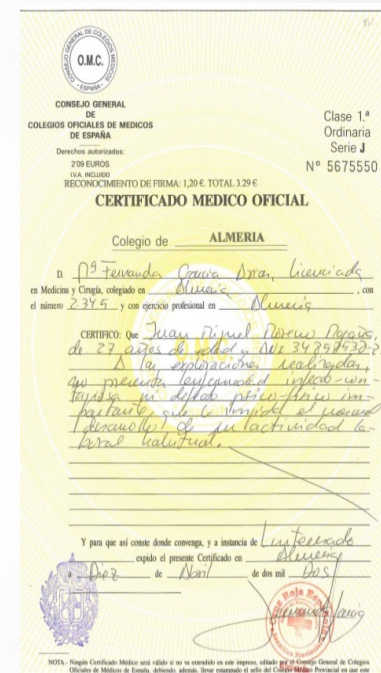 O.M.C.
CONSEJO GENERAL DE COLEGIOS MEDICOS
- ESPAÑA -
CONSEJO GENERAL
DE
COLEGIOS OFICIALES DE MEDICOS
DE ESPAÑA
Derechos autorizados:
2'09 EUROS
I.V.A. INCLUIDO
RECONOCIMIENTO DE FIRMA: 1,20 €. TOTAL 3.29 €
Clase 1.ª
Ordinaria
Serie J
Nº 5675550
CERTIFICADO MEDICO OFICIAL
Colegio de ALMERIA
D. Mª Fernanda Gracia Arias, Licenciada
en Medicina y Cirugía, colegiado en Almeria, con
el número 2345 y con ejercicio profesional en Almeria
CERTIFICO: Que Juan Miguel Moreno
de 27 años de edad y DNI
A las exploraciones realizadas,
no presenta enfermedad infecto-con-
tagiosa ni defecto psico-físico im-
portante, que le impida el normal
desarrollo de su actividad la-
boral habitual.
Y para que así conste donde convenga, y a instancia de Interesado
expido el presente Certificado en Almeria
a Diez de Abril de dos mil Dos
Cruz Roja Española
NOTA.- Ningún Certificado Médico será válido si no va extendido en este impreso, editado por el Consejo General de Colegios
Oficiales de Médicos de España, debiendo, además, llevar estampado el sello del Colegio Médico Provincial en que este